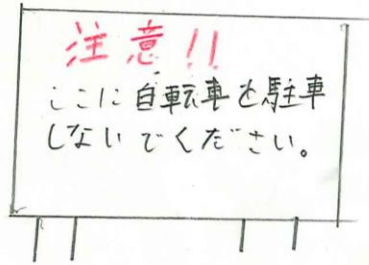 注意!!
ここに自転車を駐車
しないでください。